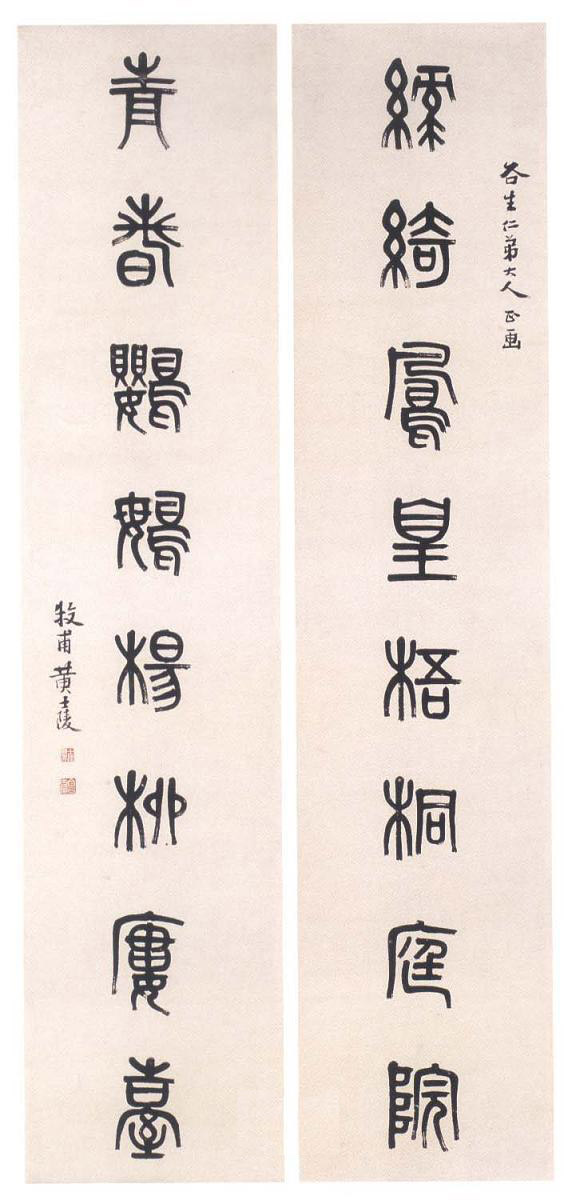 谷生仁弟大人正画
綠綺鳳皇梧桐庭院
青春鸚䳇楊柳廔臺
牧甫黃士陵